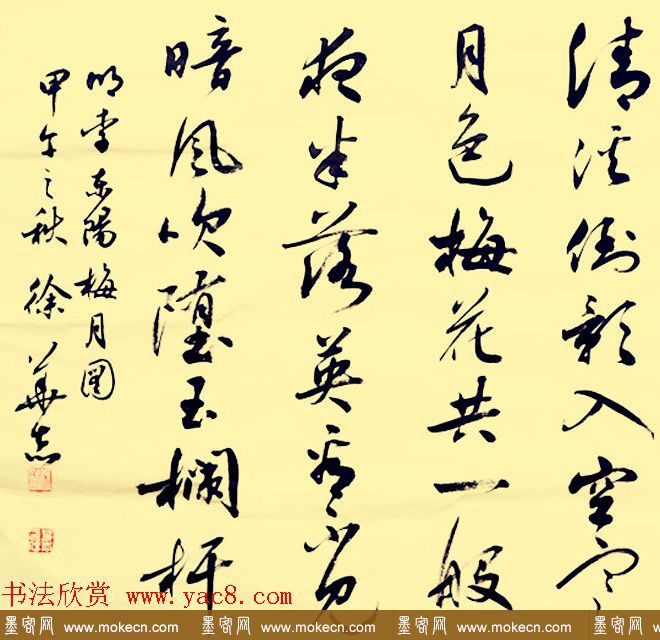 清溪倒影入空寒
月色梅花共一般
夜半落英看不見
暗風吹堕玉欄杆
明李東陽梅月圖
甲午之秋 徐華志
书法欣赏 www.yac8.com
墨客网 www.mokecn.com 墨客网 www.mokecn.com 墨客网 www.mokecn.com